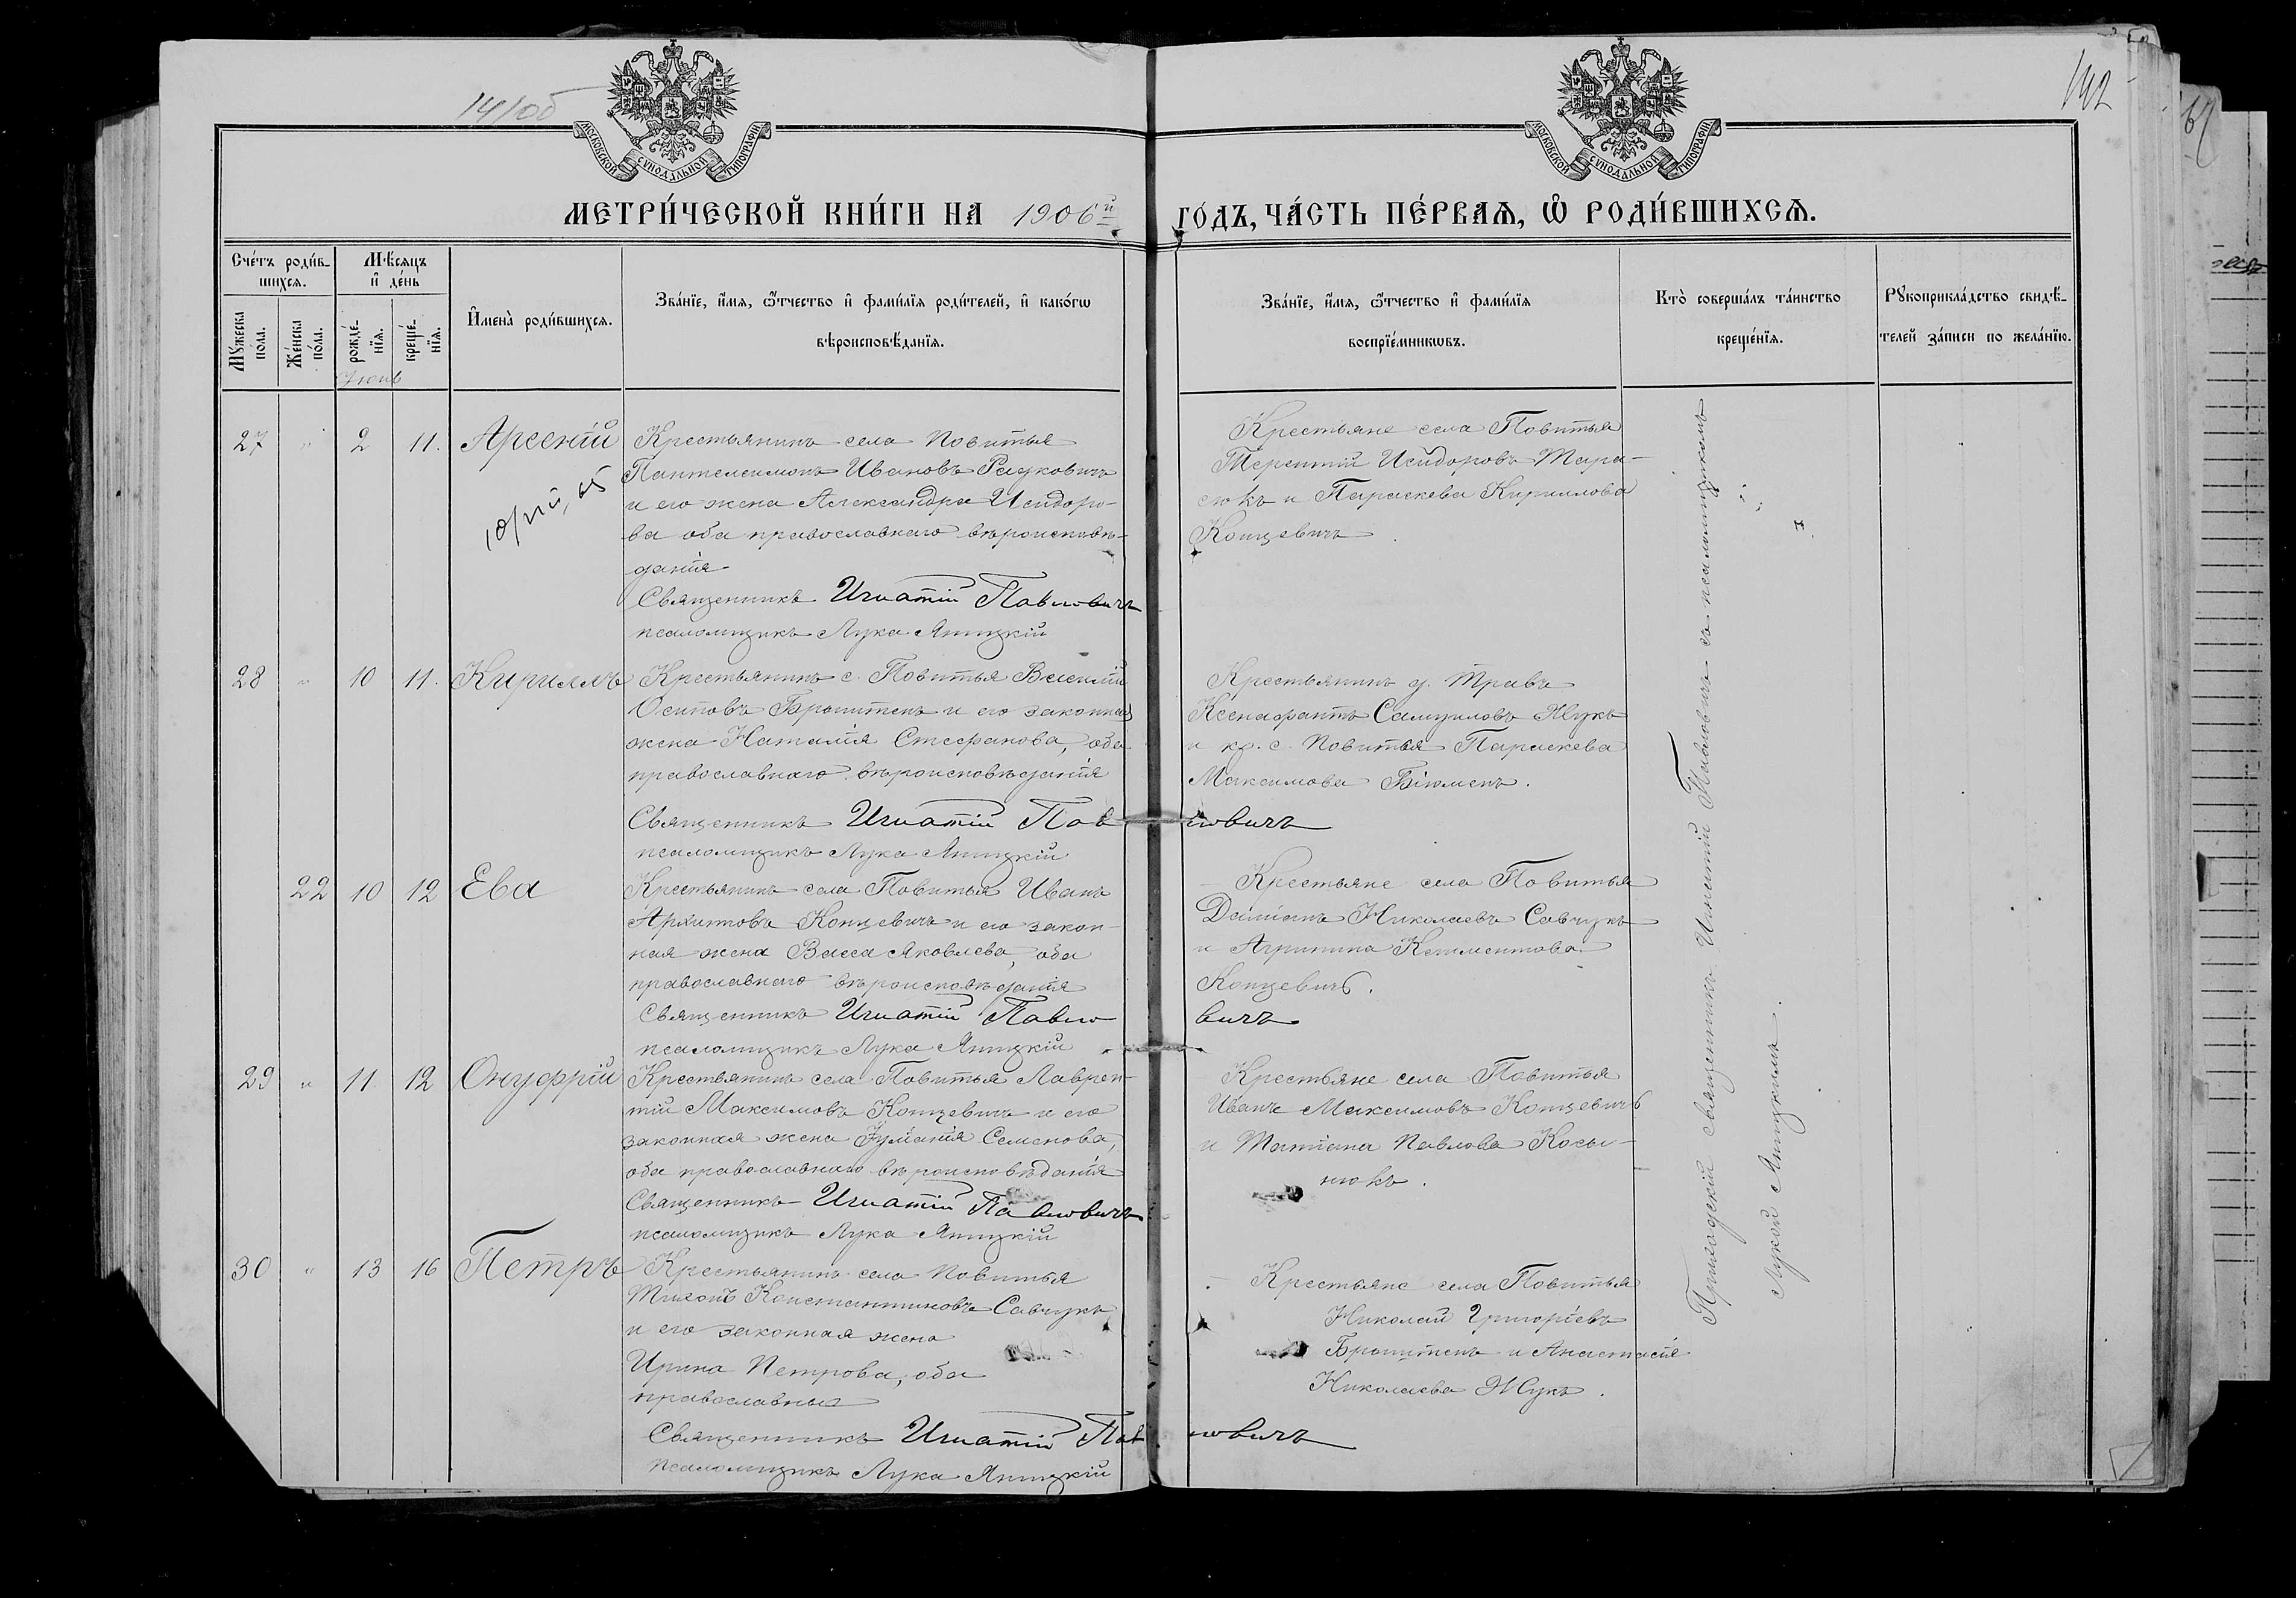 141об
142
МОСКОВСКОЙ СѴНОДАЛЬНОЙ ТИПОГРАФІИ
МОСКОВСКОЙ СѴНОДАЛЬНОЙ ТИПОГРАФІИ
МЕТРИ́ЧЕСКОЙ КНИ́ГИ НА 1906й
ГО́ДЪ, ЧА́СТЬ ПЕ́РВАѦ, Ѽ РОДИ́ВШИХСѦ.
Сче́тъ роди́в-
шихсѧ.
Мѣ́сѧцъ
и҆ де́нь
Мꙋ́жеска
по́ла.
Же́нска
по́ла.
рожде́-
нїѧ.
креще́-
нїѧ.
Іюнь
И҆мена̀ роди́вшихсѧ.
Зва́нїе, и҆́мѧ, ѻ҆́тчество и҆ фами́лїѧ роди́телей, и҆ како́гѡ
вѣроисповѣ́данїѧ.
Зва́нїе, и҆́мѧ, ѻ҆́тчество и҆ фами́лїѧ
воспрїе́мникѡвъ.
Кто̀ соверша́лъ та́инство
креще́нїѧ.
Рꙋкоприкла́дство свидѣ́-
телей за́писи по жела́нїю.
27 " 2 11. Арсеній
Крестьянинъ села Повитья
Пантелеимонъ Ивановъ Радковичъ
и его жена Александра Исидоро-
ва оба православнаго вѣроисповѣ-
данія
Священникъ Игнатій Павловичъ
псаломщикъ Лука Яницкій
Крестьяне села Повитья
Терентій Исидоровъ Тара-
сюкъ и Параскева Кириллова
Концевичъ
28 " 10 11. Кириллъ
Крестьянинъ с. Повитья Василій
Осиповъ Бронитенъ и его законная
жена Наталія Стефанова, оба
православнаго вѣроисповѣданія
Священникъ Игнатій Павловичъ
псаломщикъ Лука Яницкій
Крестьянинъ д. Травъ
Ксенафантъ Самуиловъ Жукъ
и кр. с. Повитья Параскева
Максимова
22 10 12 Ева
Крестьянинъ села Повитья Иванъ
Архиповъ Концевичъ и его закон-
ная жена Васса Яковлева, оба
православнаго вѣроисповѣданія
Священникъ Игнатій Павловичъ
псаломщикъ Лука Яницкій
Крестьяне села Повитья
Даміанъ Николаевъ Савчукъ
и Агрипина Климентова
Концевичъ.
29 " 11 12 Онуфрій
Крестьянинъ села Повитья Лаврен-
тій Максимовъ Концевичъ и его
законная жена Іуліанія Семенова,
оба православнаго вѣроисповѣданія
Священникъ Игнатій Павловичъ
псаломщикъ Лука Яницкій
Крестьяне села Повитья
Иванъ Максимовъ Концевичъ
и Татіана Павлова Косы-
нюкъ.
30 " 13 16 Петръ
Крестьянинъ села Повитья
Тихонъ Константиновъ Савчукъ
и его законная жена
Ирина Петрова, оба
православные
Священникъ Игнатій Павловичъ
псаломщикъ Лука Яницкій
Крестьяне села Повитья
Николай Григоріевъ
Бронитенъ и Анастасія
Николаева Жукъ.
Приходскій священникъ Игнатій Павловичъ съ псаломщикомъ
Лукой Яницкимъ.